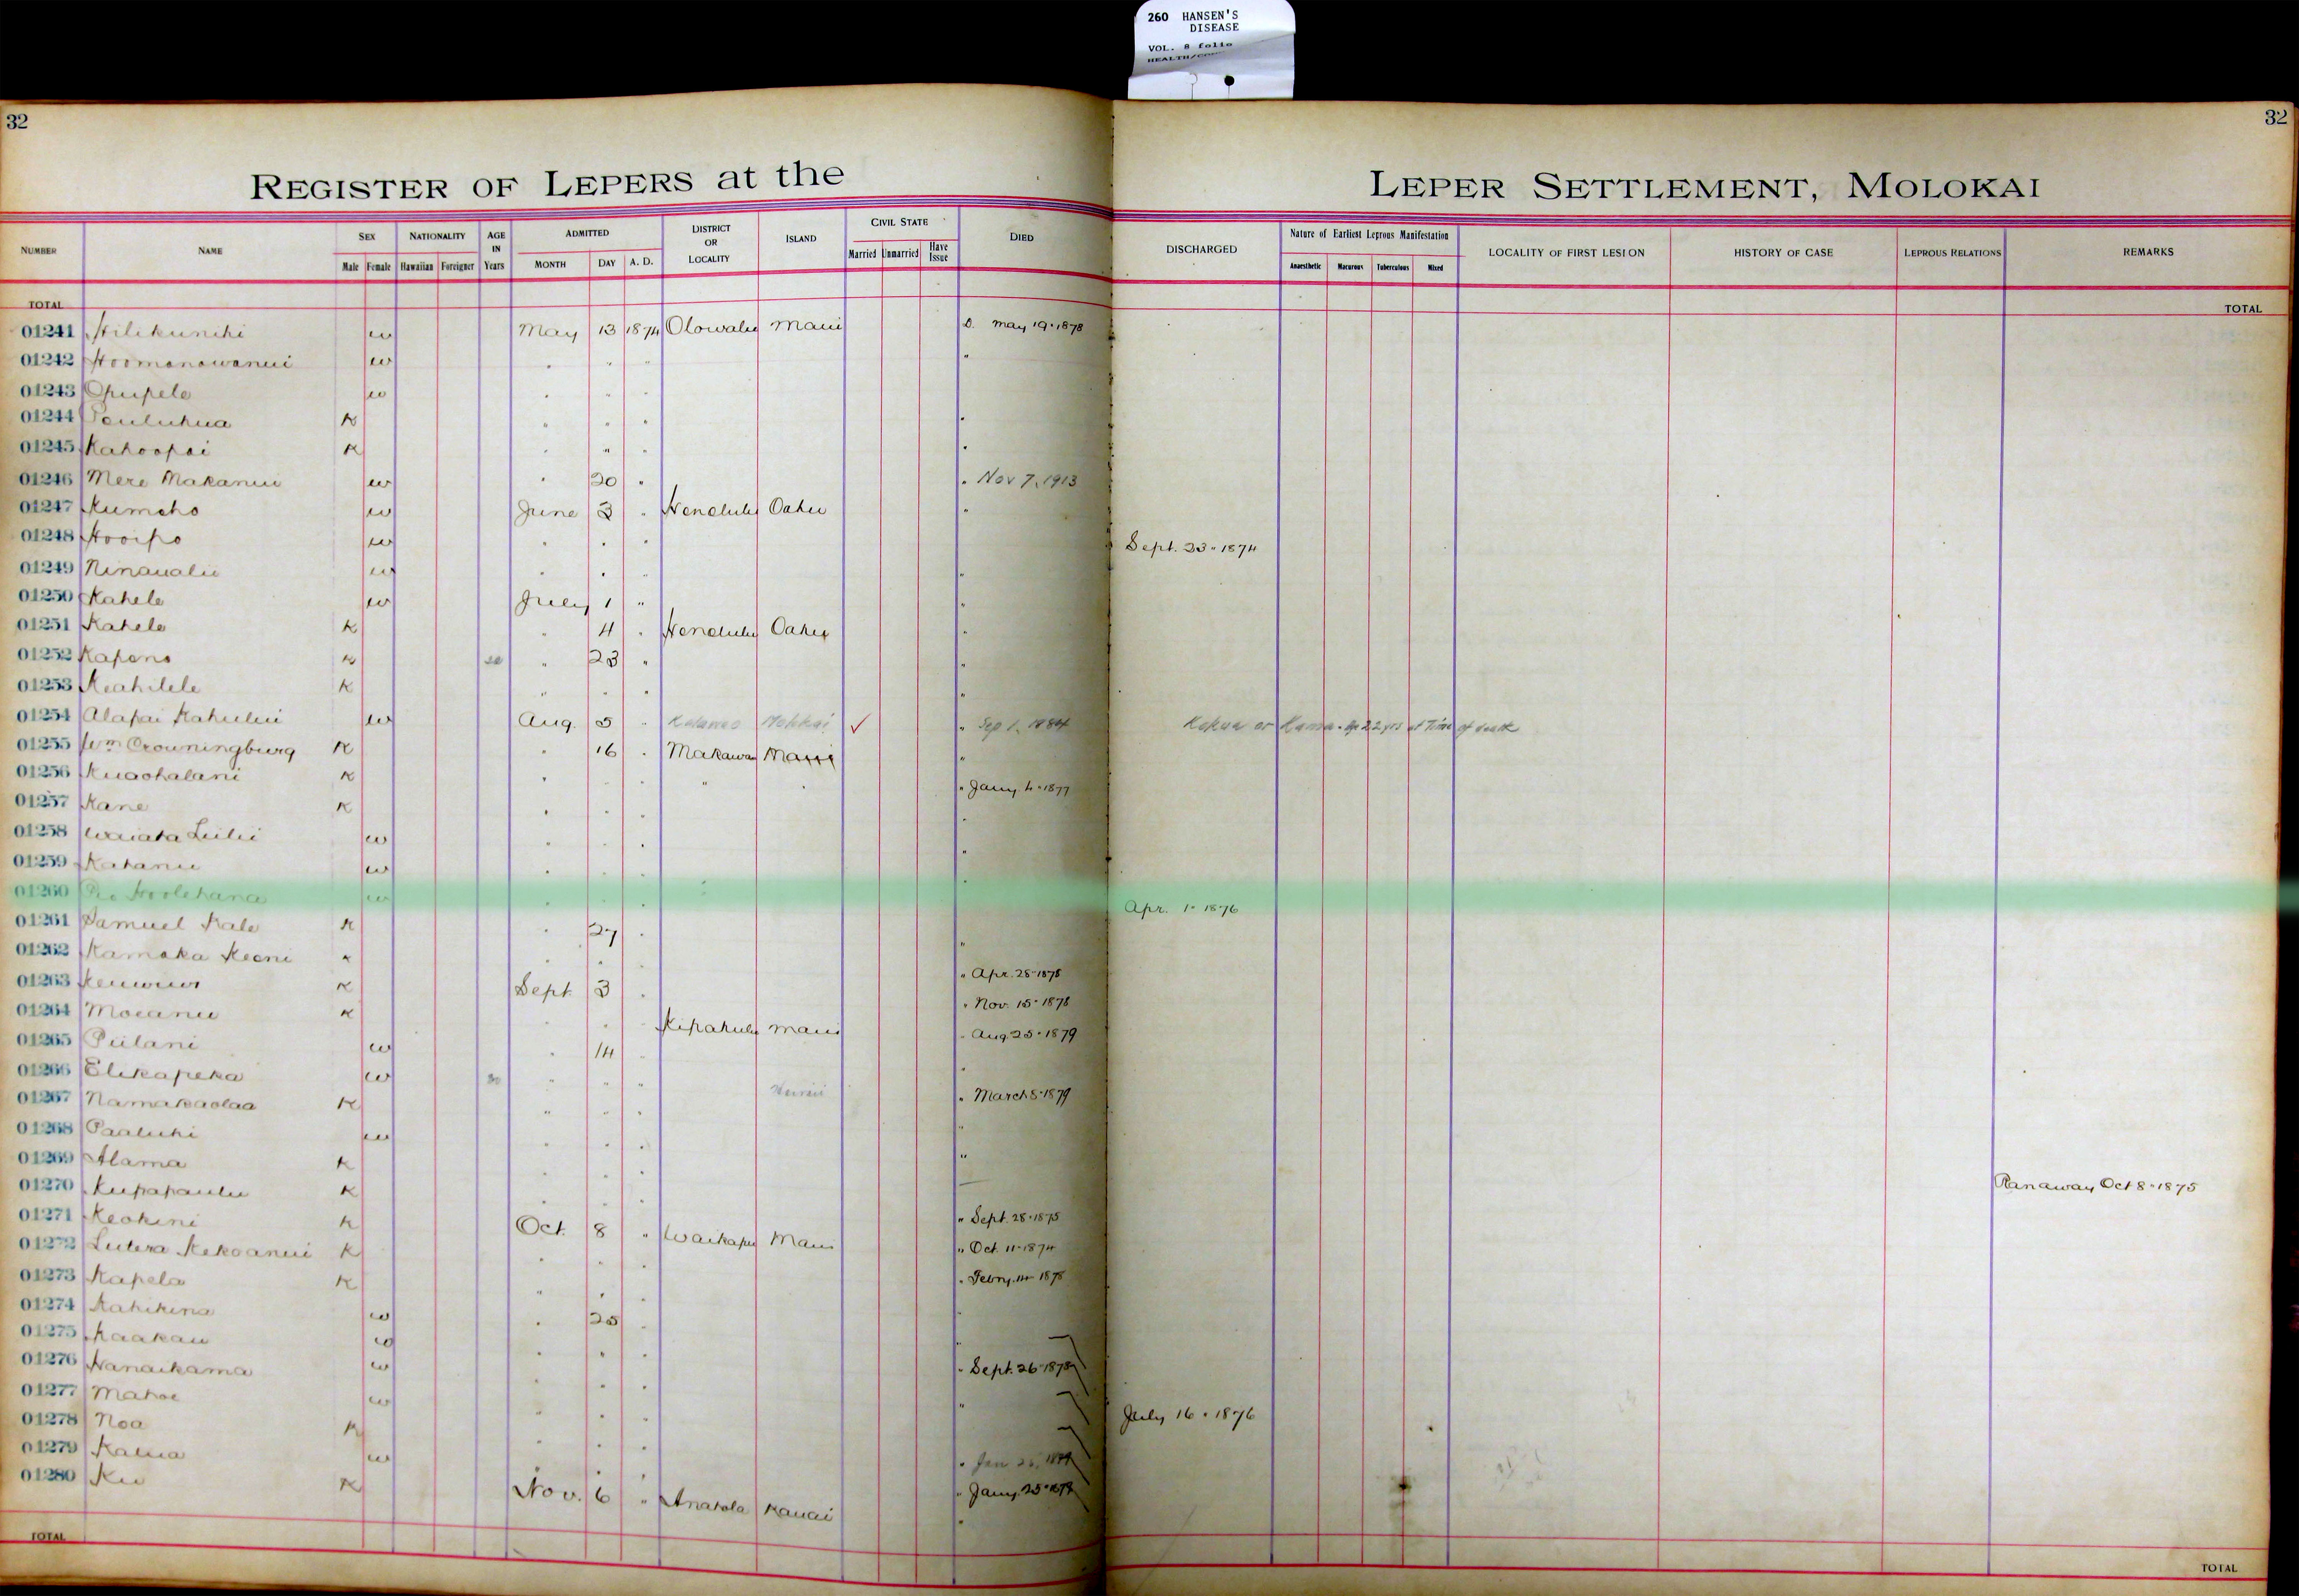 260 HANSEN'S
DISEASE
VOL. 8 folio
32
32
REGISTER OF LEPERS at the LEPER SETTLEMENT, MOLOKAI
NUMBER NAME SEX Male Female NATIONALITY Hawaiian Foreigner AGE IN Years ADMITTED MONTH DAY A. D. DISTRICT OR LOCALITY ISLAND CIVIL STATE Married Unmarried Have Issue DIED DISCHARGED Nature of Earliest Leprous Manifestation Anaesthetic Macurous Tuberculous Mixed LOCALITY OF FIRST LESION HISTORY OF CASE LEPROUS RELATIONS REMARKS
TOTAL TOTAL
01241 Hilikunihi w May 13 1874 Olowalu Maui D. May 19 · 1878
01242 Hoomanawanui w " " " "
01243 Opupele w " " "
01244 Pauluhua K " " " "
01245 Kahoopai K " " " "
01246 Mere Makanui w " 20 " " Nov 7, 1913
01247 Kumeho w June 3 " Honolulu Oahu "
01248 Hooipo w " " " Sept. 23 · 1874
01249 Ninaualu w " " " "
01250 Kahele w July 1 " "
01251 Kahele K " 4 " Honolulu Oahu "
01252 Kapono K " 23 " "
01253 Keahilele K " " " "
01254 Alapai Kahului w Aug. 5 " Kalawao Molokai ✓ " Sep 1, 1884 Kokua or Kama · Age 22 yrs at Time of death
01255 Wm Crowningburg K " 16 " Makawao Maui "
01256 Kuaohalani K " " " " " " Jany 4 · 1877
01257 Kane K " " " "
01258 Waiata Luilii w " " " "
01259 Kahanu w " " " "
01260 Hoolehana w " " " Apr. 1 · 1876
01261 Samuel Kale K " 27 " "
01262 Kamaka Keoni K " " " Apr. 28 · 1878
01263 K Sept. 3 " " Nov. 15 · 1878
01264 Moeanu K " " " Kipahulu Maui " Aug 25 · 1879
01265 Piilani w " 14 " "
01266 Elikapeka w 30 " " " Hawaii " March 5 · 1879
01267 Namakaolaa K " " " "
01268 Paaluhi w " " " "
01269 Alama K " " " —
01270 Kupapaulu K " " " " Sept. 28 · 1875 Ranaway Oct 8 · 1875
01271 Keokini K Oct. 8 " Waikapu Maui " Oct. 11 · 1874
01272 Lutera Kekoanui K " " " " Febry. 14 · 1878
01273 Kapela K " " " "
01274 Kahikina w " 25 " "
01275 Kaakau w " " " " Sept. 26 · 1878
01276 Nanaikama w " " " "
01277 Mahoe w " " " July 16 · 1876
01278 Noa K " " "
01279 Kalua w " " "
01280 Ku K Nov. 6 " Anahola Kauai "
TOTAL TOTAL